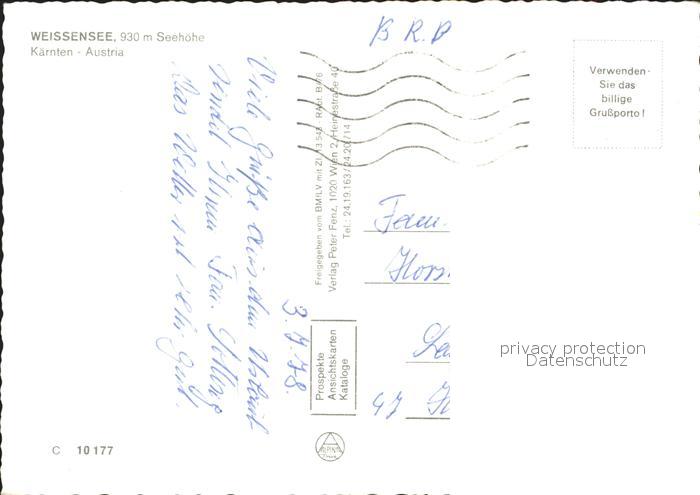 WEISSENSEE, 930 m Seehöhe
Kärnten - Austria
B R. D
Verwenden
Sie das
billige
Grußporto!
3.7.78.
Viele Grüße aus dem Urlaub
sendet Ihnen Fam.
Das Wetter ist sehr gut.
Freigegeben vom BMfLV mit Zl. 13.543 - RAbt. B/76
Verlag Peter Fenz, 1020 Wien 2, Heinestraße 40
Tel.: 24.19.163/24.20.714
Fam.
Hors
Prospekte
Ansichtskarten
Kataloge
privacy protection
Datenschutz
47
C 10177